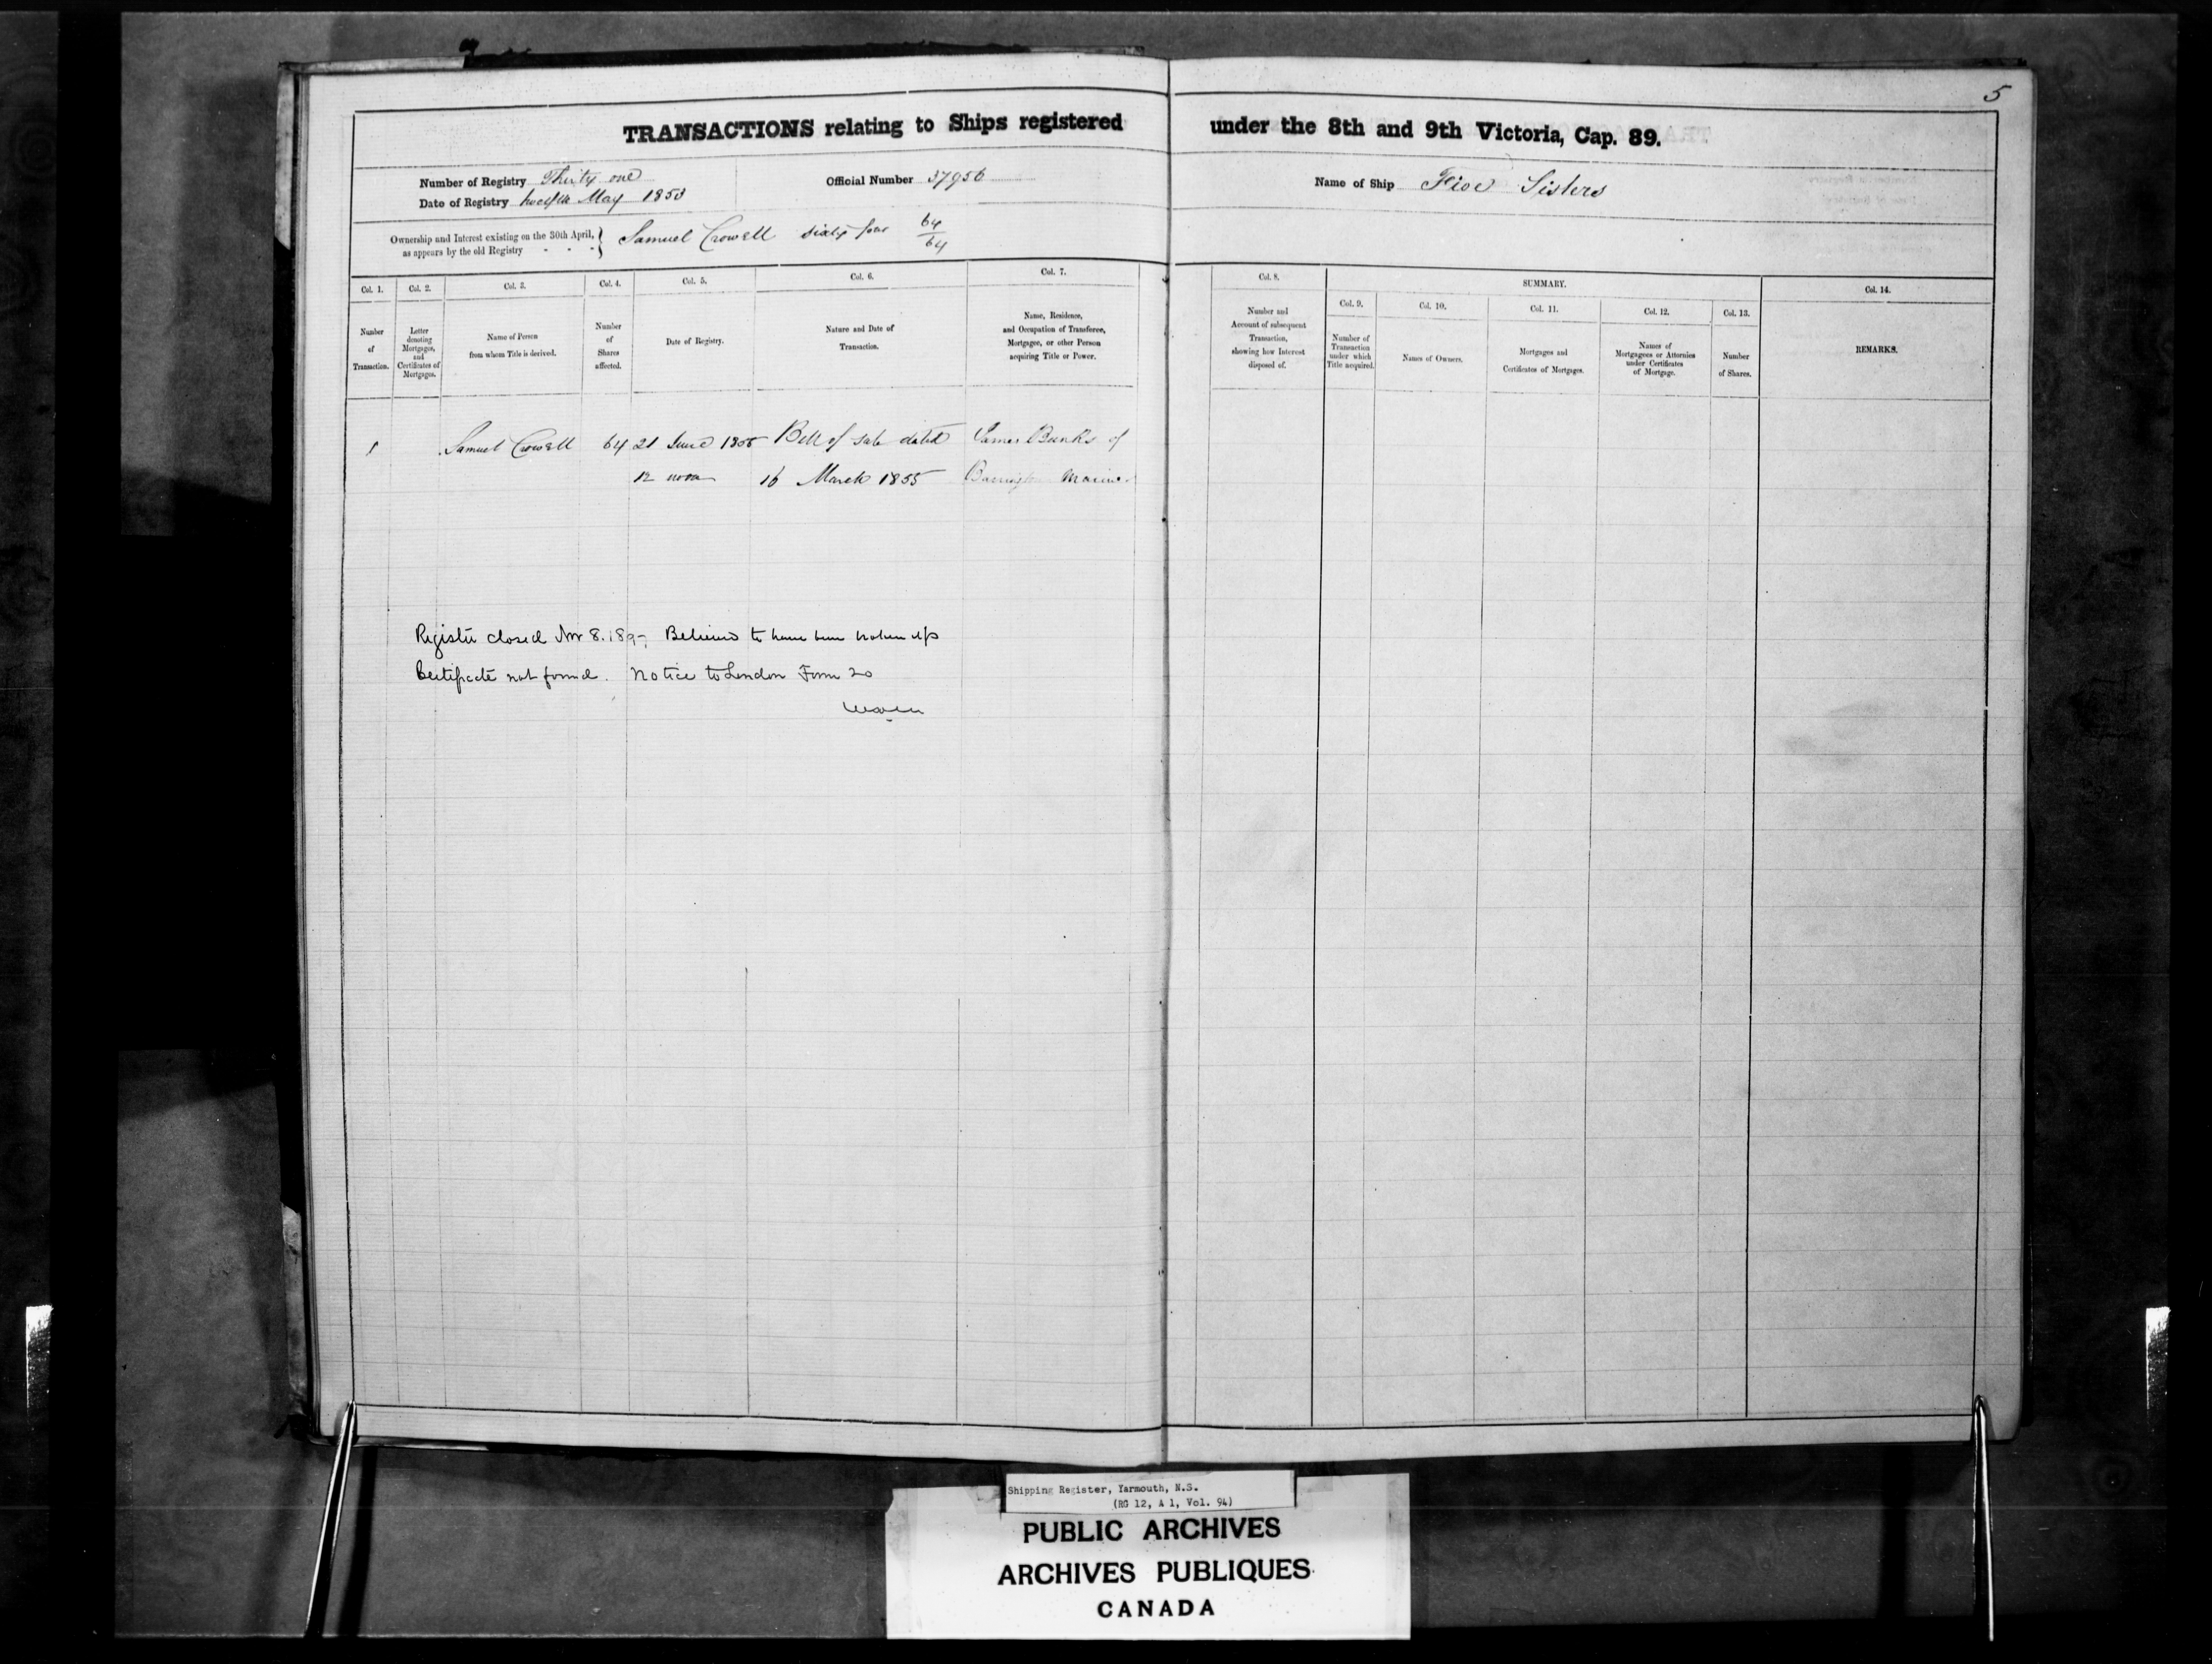 5
TRANSACTIONS relating to Ships registered under the 8th and 9th Victoria, Cap. 89.
Number of Registry Thirty one
Date of Registry twelfth May 1853
Official Number 37956
Name of Ship Five Sisters
Ownership and Interest existing on the 30th April, as appears by the old Registry - - - } Samuel Crowell sixty four 64/64
Col. 1.
Number of Transaction.
Col. 2.
Letter denoting Mortgages, and Certificates of Mortgages.
Col. 3.
Name of Person from whom Title is derived.
Col. 4.
Number of Shares affected.
Col. 5.
Date of Registry.
Col. 6.
Nature and Date of Transaction.
Col. 7.
Name, Residence, and Occupation of Transferee, Mortgagee, or other Person acquiring Title or Power.
Col. 8.
Number and Account of subsequent Transaction, showing how Interest disposed of.
SUMMARY.
Col. 9.
Number of Transaction under which Title acquired.
Col. 10.
Names of Owners.
Col. 11.
Mortgages and Certificates of Mortgages.
Col. 12.
Names of Mortgagees or Attornies under Certificates of Mortgage.
Col. 13.
Number of Shares.
Col. 14.
REMARKS.
1 Samuel Crowell 64 21 June 1855 Bill of Sale dated James Banks of
12 noon 16 March 1855 Mariner
Register closed Nov 8. Believed to have been broken up
Certificate not found. Notice to London Form 20
Shipping Register, Yarmouth, N.S.
(RG 12, A 1, Vol. 94)
PUBLIC ARCHIVES
ARCHIVES PUBLIQUES
CANADA